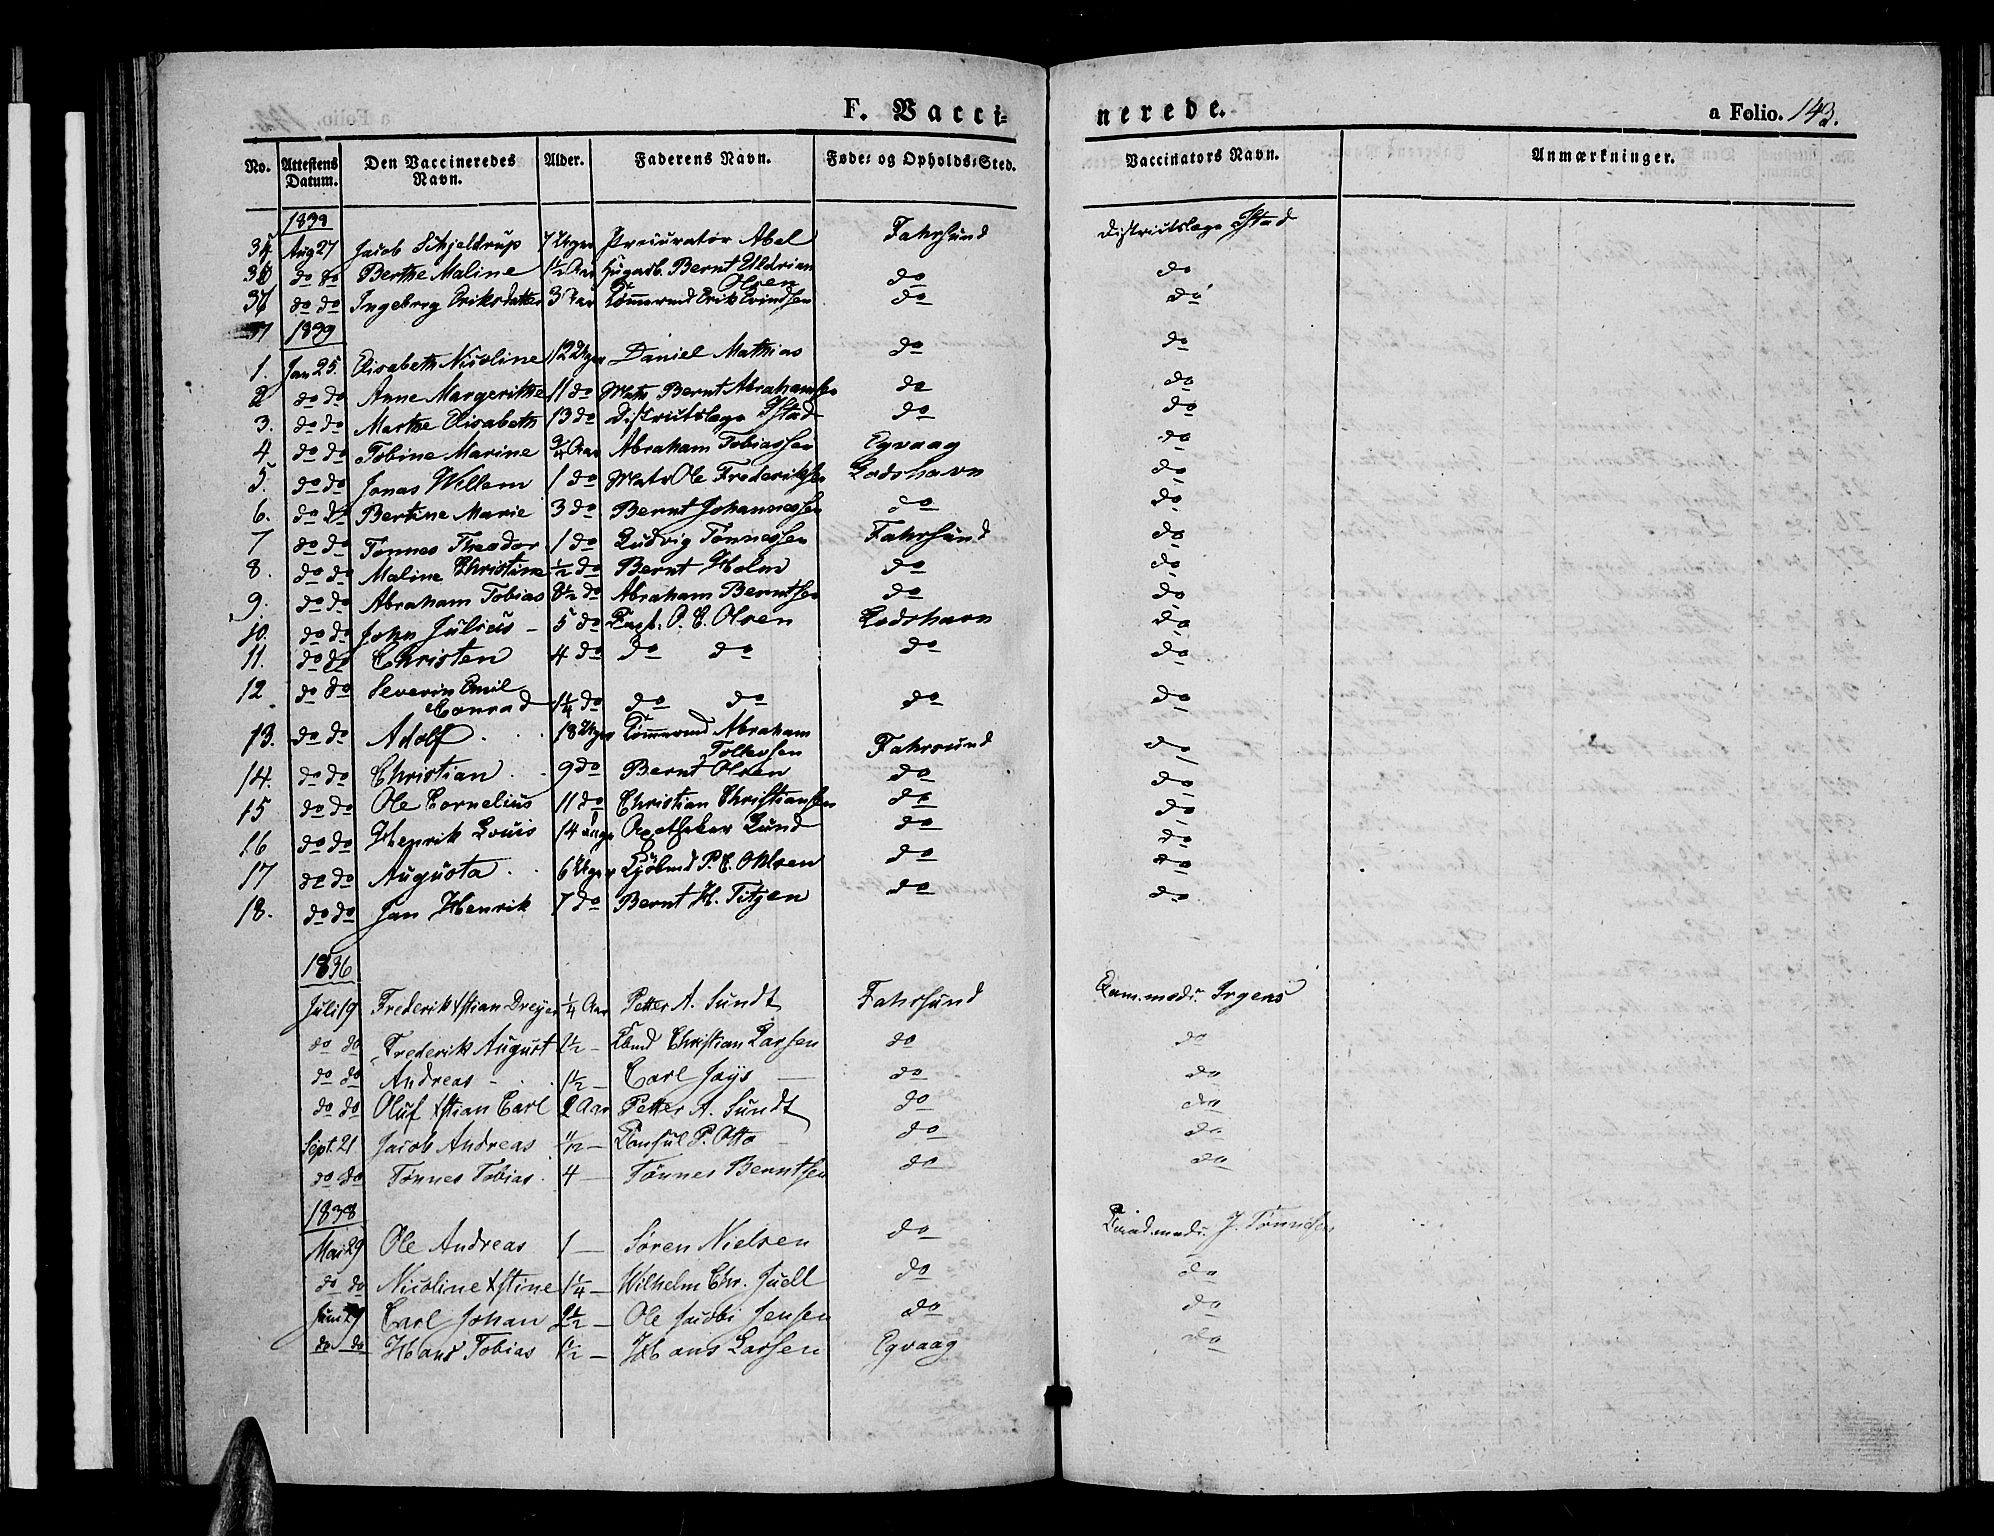 F. Vacci=
nerede.
a Folio. 143.
No. Attestens Datum. Den Vaccineredes Navn. Alder. Faderens Navn. Føde= og Opholds=Sted. Vaccinators Navn. Anmærkninger.
Aug 27 Jacob Schjeldrup 7 Uger Procurator Abel Fahrsund Districtslæge Ystad
36 do do Berthe Maline 1½ Aar Bernt Uldrian Olsen do do
37 do do Ingeborg Eriksdatter 3 Aar Tømmermd Erik Evindsen do do
1839
1. Jan 25. Elisabeth Nicoline 12 Uger Daniel Mathias do do
2 do do Anne Margerithe 11 do Matr. Bernt Abrahamsen do do
3. do do Marthe Elisabeth 13 do Districtslæge Ystad do do
4 do do Tobine Marine ¾ Aar Abraham Tobiassen Egvaag do
5. do do Jonas Willem 1 do Matr Ole Frederiksen Lodshavn do
6. do do Bertine Marie 3 do Bernt Johannessen do do
7 do do Tønnes Theodor 1 do Ludvig Tønnessen Fahrsund do
8. do do Maline Christine ½ do Bernt Holm do do
9. do do Abraham Tobias 8½ do Abraham Berntsen do do
10. do do John Julius - 5 do Capt. O. E. Olsen Lodshavn do
11. do do Christen 4 do do do do do
12. do do Severin Emil Conrad 1¼ do do do do do
13. do do Adolf 18 Uger Tømmermd Abraham Tollefsen Fahrsund do
14. do do Christian 9 do Bernt Olsen do do
15 do do Ole Cornelius 11 do Christian Christiansen do do
16 do do Henrik Louis 14 Dage Apotheker Lund do do
17 do do Augusta 6 Uger Kjøbmd P. C. Ohlsen do do
18. do do Jan Henrik 7 do Bernt H. Titjen do do
1836
Juli 19 Frederik Xstian Dreyer ¼ Aar Petter A. Sundt Fahrsund Exam.medi: Irgens
do do Frederik August 1½ - Kbmd Christian Larsen do do
do do Andreas - 1½ - Carl Jays - do do
do do Oluf Xstian Carl 2 Aar Petter A. Sundt do do
Sept. 21 Jacob Andreas ½ - Consul P. Otto - do do
do do Tønnes Tobias 4 - Tønnes Berntsen do do
1838
Mai 29 Ole Andreas 1 - Søren Nielsen do J. Tønnesen
do do Nicoline Xstine 1¼ - Wilhelm Chr. Juell do do
Juni 29 Carl Johan 2½ - Ole Jacobi Jensen do do
do do Hans Tobias 1½ - Hans Larsen Egvaag do